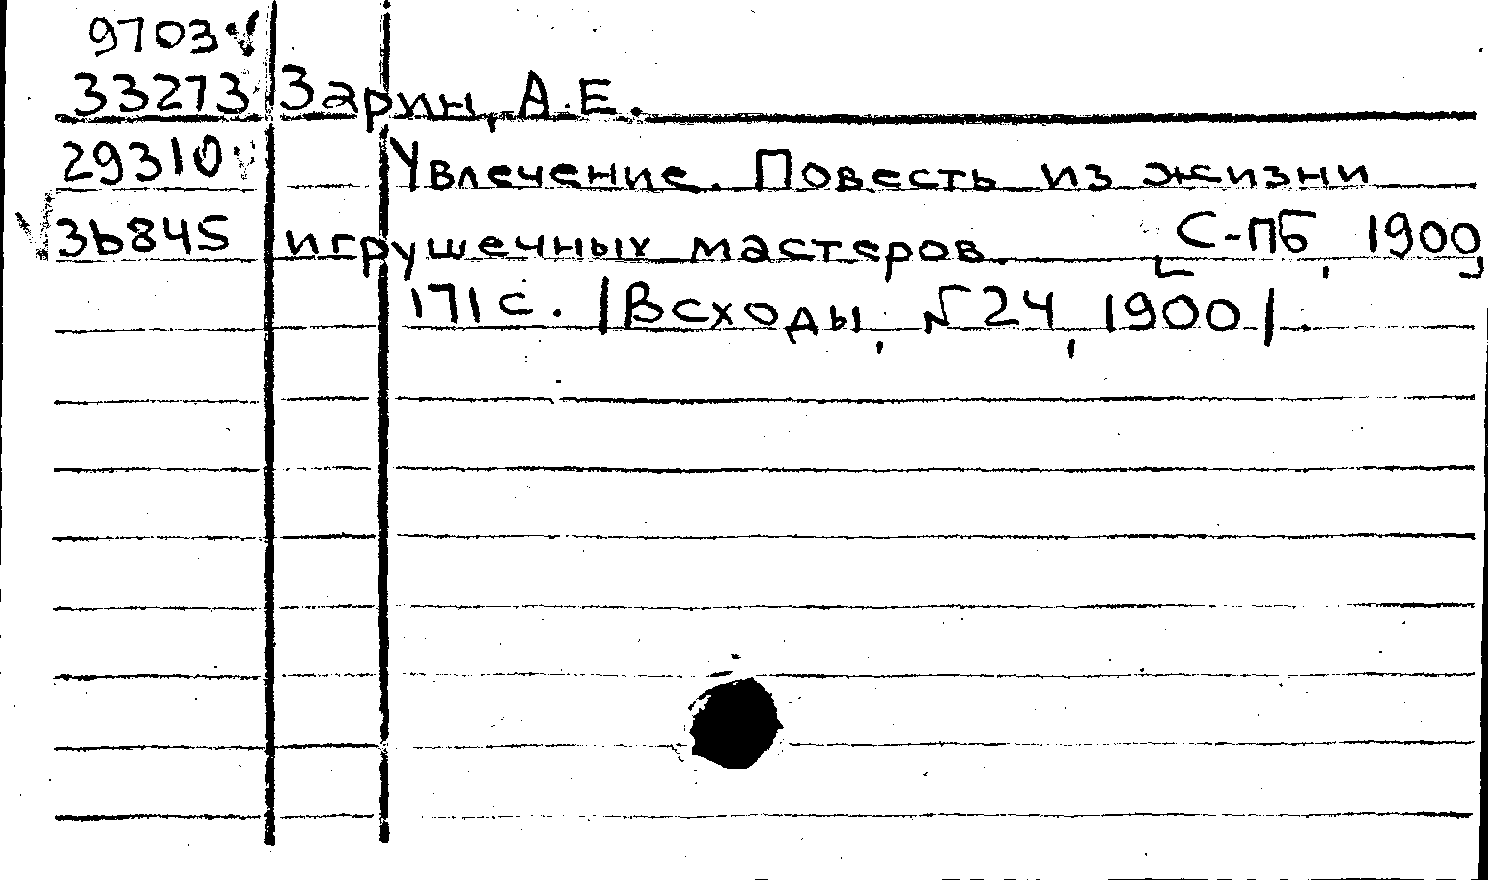 9703 ✓
33273 Зарин, А.Е.
29310 ✓ Увлечение. Повесть из жизни
✓ 36845 игрушечных мастеров. [С-ПБ, 1900]
171 с. /Всходы, № 24, 1900/.